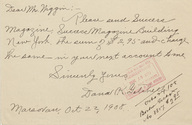 Dear Mr. Higgin:
Please send Success
Magazine, Success Magazine Building
New York the sum of $2.95 and charge
the same in your next account home.
Sincerely Yours,
Dana K.
Marsovan, Oct 22, 1908